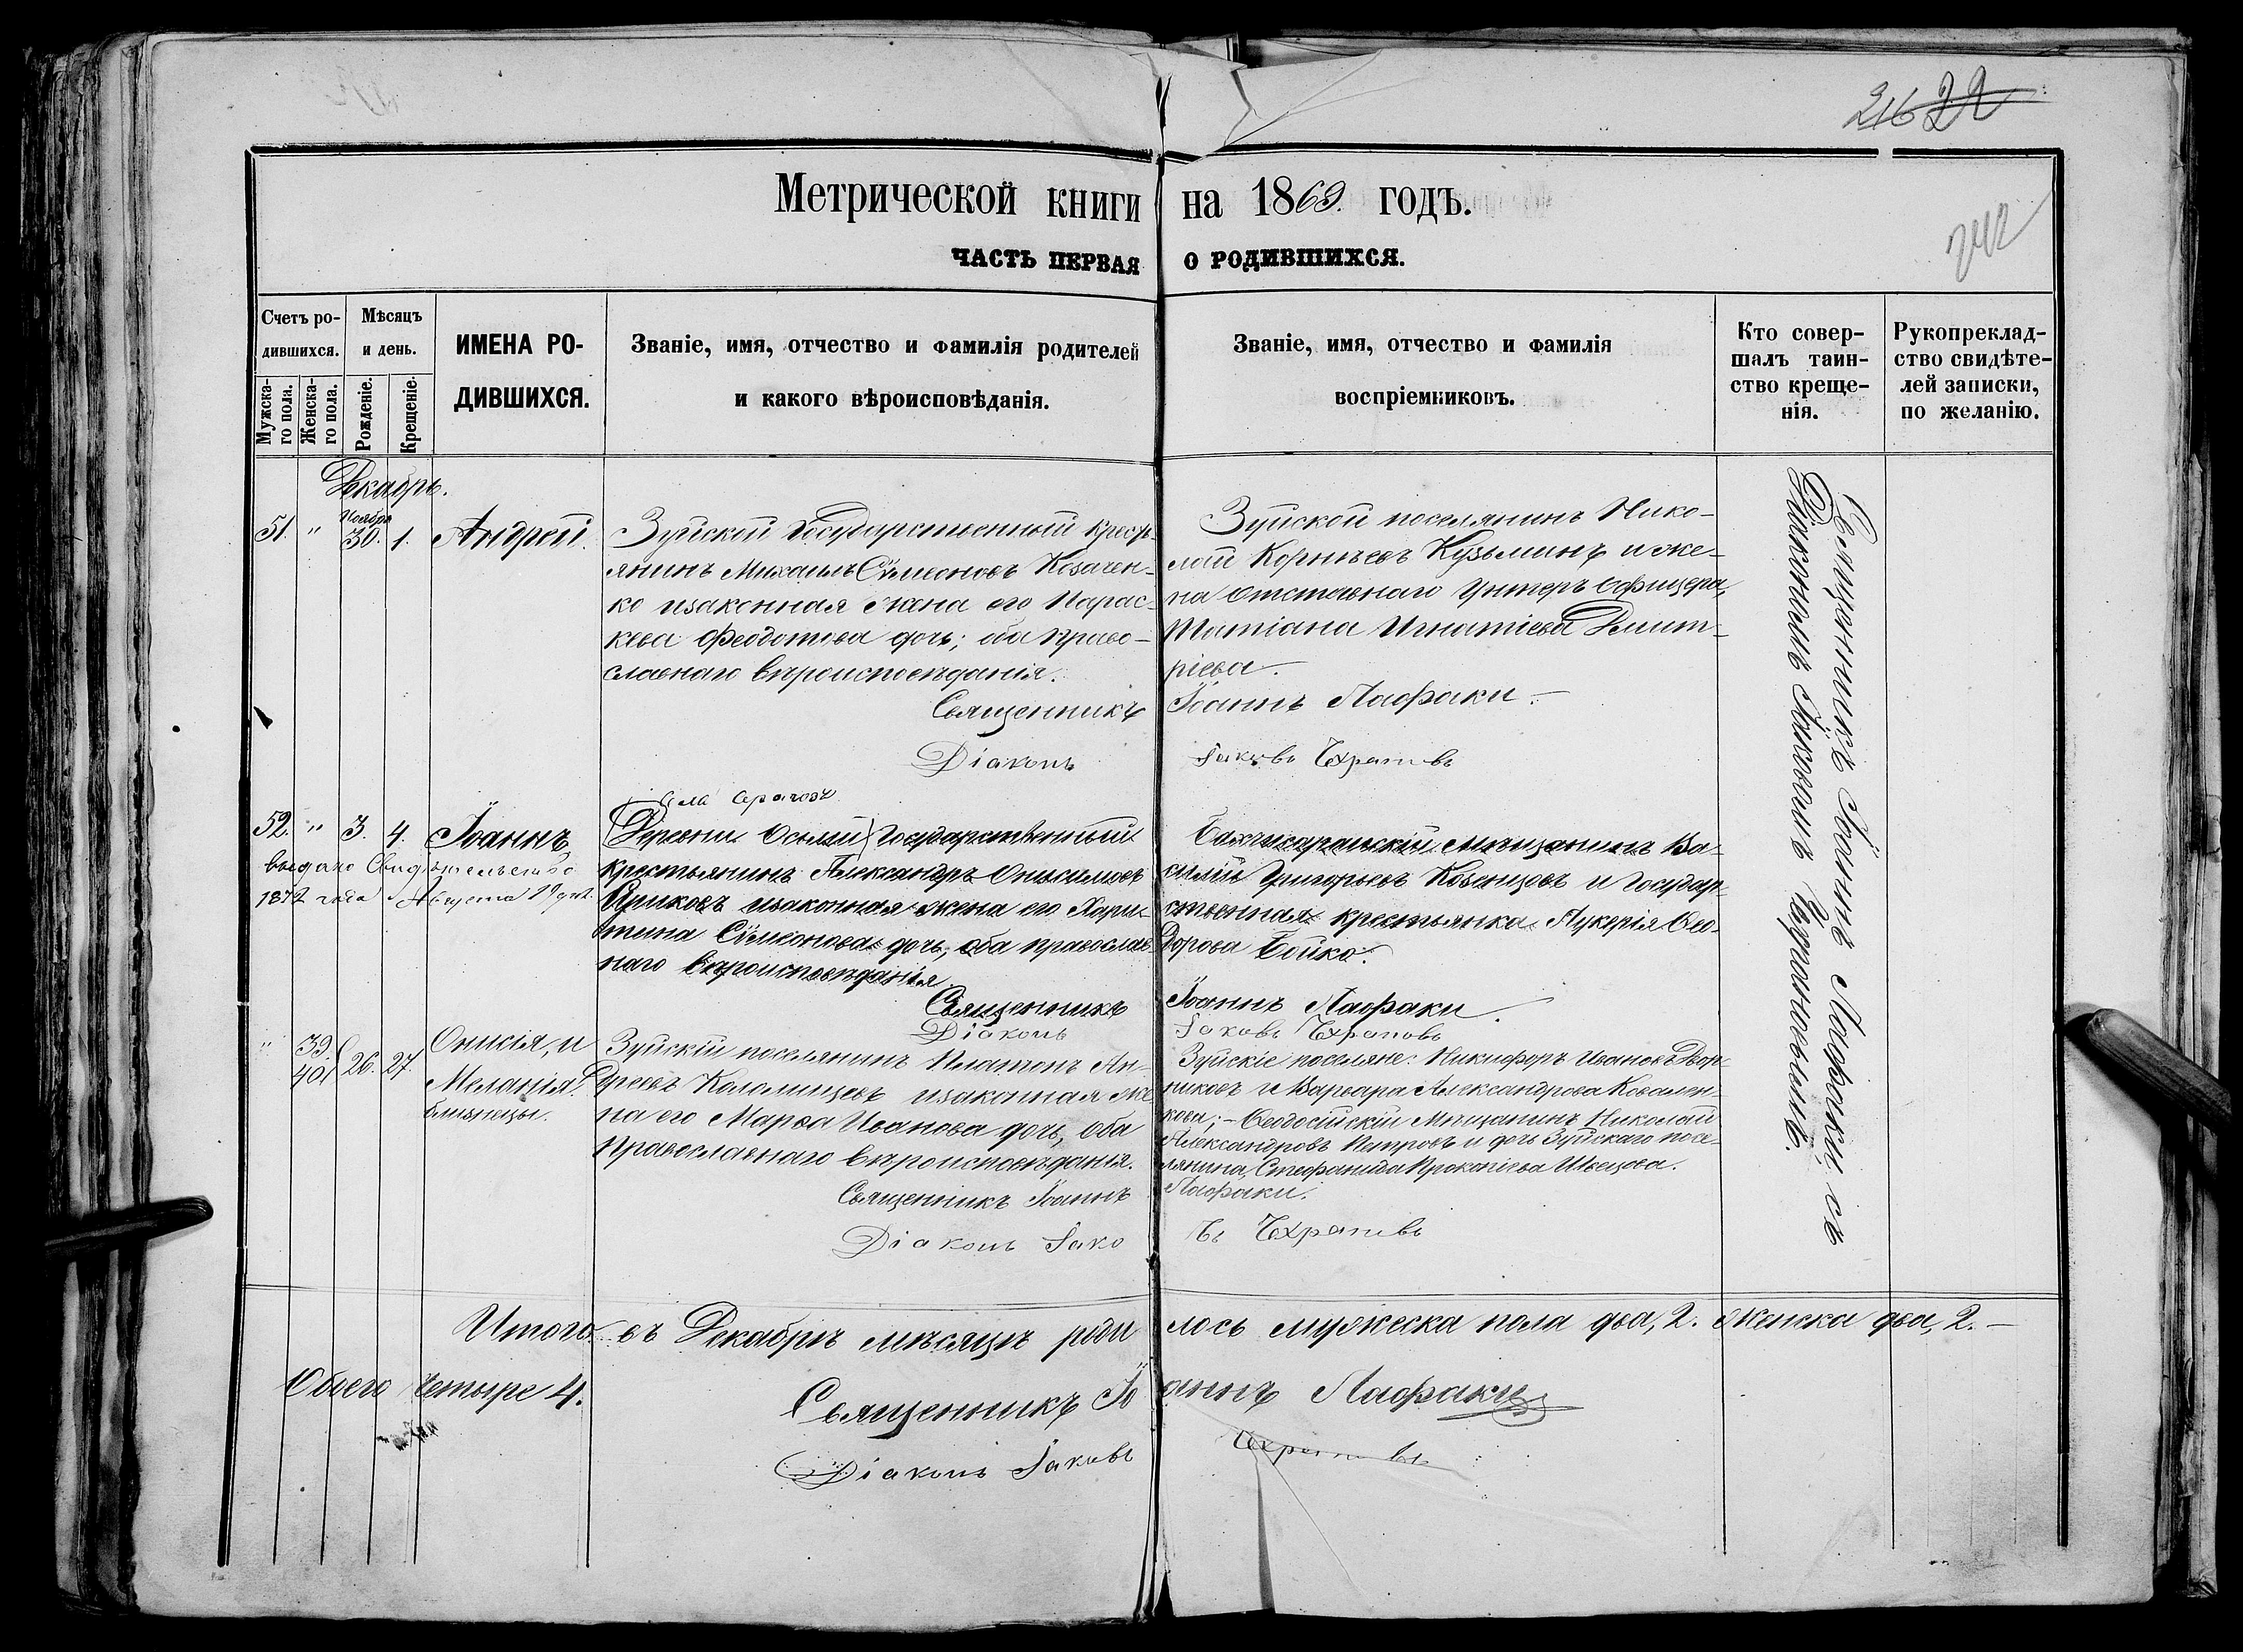 216 22
242
Метрической книги на 1869. годъ.
ЧАСТЬ ПЕРВАЯ О РОДИВШИХСЯ.
Счетъ ро-
дившихся.
Мужска-
го пола.
Женска-
го пола.
Мѣсяцъ
и день.
Рожденіе.
Крещеніе.
ИМЕНА РО-
ДИВШИХСЯ.
Званіе, имя, отчество и фамилія родителей
и какого вѣроисповѣданія.
Званіе, имя, отчество и фамилія
воспріемниковъ.
Кто совер-
шалъ таин-
ство креще-
нія.
Рукоприклад-
ство свидѣте-
лей записки,
по желанію.
Декабрь.
51. " Ноября 30. 1. Андрей.
Зуйской Государственный крест-
янинъ Михаилъ Сѵмеоновъ Козачен-
ко изаконная жена его Парас-
кева Феодотова дочь; оба право-
славнаго вѣроисповѣданія.
Зуйской поселянинъ Нико-
лай Корнѣевъ Кузьминъ и же-
на отставнаго Унтеръ Офицера,
Татіана Игнатіева Димит-
ріева.
Священникъ Іоаннъ Лафаки.
Діаконъ Іаковъ
52. " 3. 4. Іоаннъ
выдано Свидѣтельство
1872 года Августа 29 дня
села
Деревни Государственный
крестьянинъ Александръ Онисимовъ
изаконная жена его Хари-
тина Сѵмеонова дочь, оба православ-
наго вѣроисповѣданія
Бахчисарайскій мѣщанинъ Ва-
силій Григорьевъ Козенцовъ и Государ-
ственная крестьянка Лукерія Ѳео-
дорова Бойко.
Священникъ Іоаннъ Лафаки.
Діаконъ Іаковъ
" 39. 40. 26. 27. Онисія, и
Меланія.
близнецы.
Зуйскій поселянинъ Платонъ Ан-
дреевъ Коломийцевъ изаконная же-
на его Марѳа Иванова дочь, оба
Православнаго вѣроисповѣданія.
Зуйскіе поселяне: Никифоръ Ивановъ Двор-
никовъ и Варвара Александрова Ковален-
кова; - Ѳеодосійскій Мѣщанинъ Николай
Александровъ Петровъ и дочь Зуйскаго посе-
лянина, Стефанида Прокопіева Швецова.
Священникъ Іоаннъ Лафаки.
Діаконъ Іаковъ
Священникъ Іоаннъ Лафаки, съ
Діакономъ Іаковомъ
Итого въ Декабрѣ мѣсяцѣ родилось мужеска пола два, 2. женска два, 2. —
Обоего четыре 4.
Священникъ Іоаннъ Лафаки
Діаконъ Іаковъ